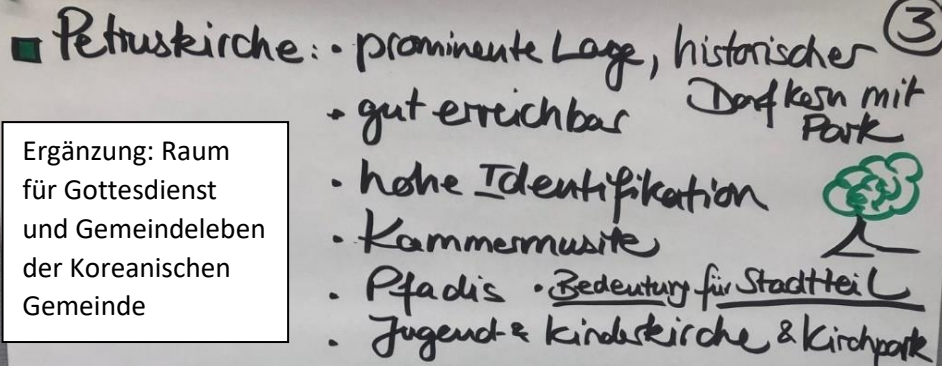 ③
Petruskirche: • prominente Lage, historischer
Dorfkern mit
Park
• gut erreichbar
• hohe Identifikation
• Kammermusik
• Pfadis • Bedeutung für Stadtteil
• Jugend- & Kinderkirche & Kirchpark
Ergänzung: Raum
für Gottesdienst
und Gemeindeleben
der Koreanischen
Gemeinde